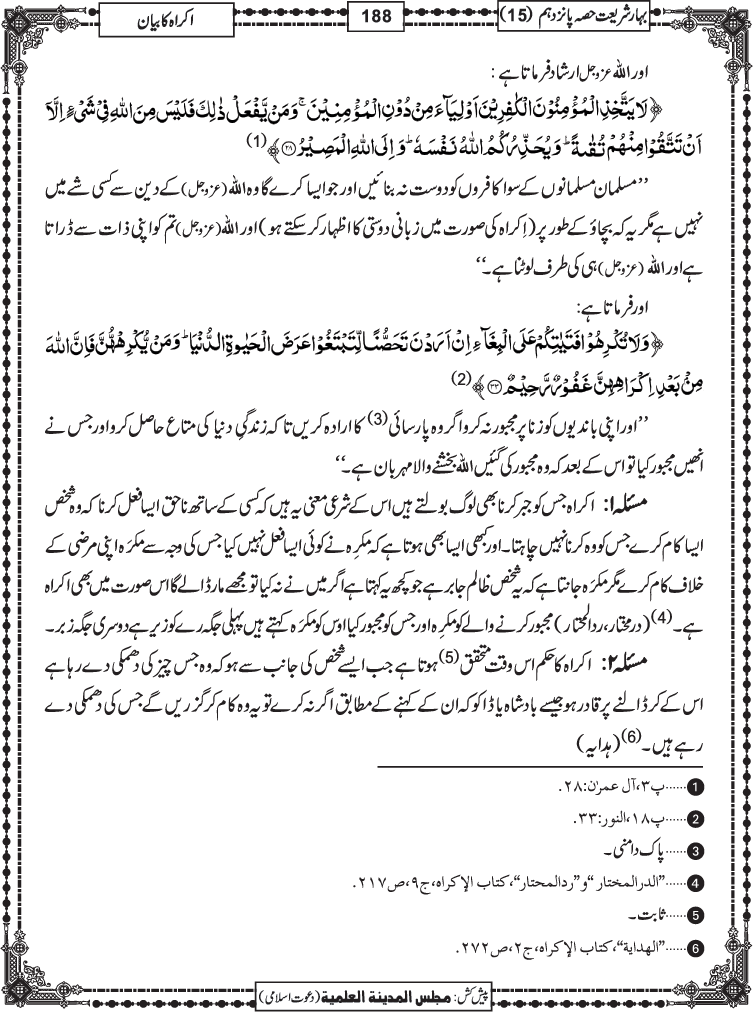 بہار شریعت حصہ پانزدہم (15)
188
اکراہ کا بیان
اور اللہ عزوجل ارشاد فرماتا ہے :
﴿ لَا یَتَّخِذِ الْمُؤْمِنُوْنَ الْكٰفِرِیْنَ اَوْلِیَآءَ مِنْ دُوْنِ الْمُؤْمِنِیْنَۚ وَ مَنْ یَّفْعَلْ ذٰلِكَ فَلَیْسَ مِنَ اللّٰهِ فِیْ شَیْءٍ اِلَّاۤ
اَنْ تَتَّقُوْا مِنْهُمْ تُقٰىةًؕ وَ یُحَذِّرُكُمُ اللّٰهُ نَفْسَهٗؕ وَ اِلَى اللّٰهِ الْمَصِیْرُ۝۲۸ ﴾ (1)
’’مسلمان مسلمانوں کے سوا کافروں کو دوست نہ بنائیں اور جو ایسا کرے گا وہ اللہ (عزوجل) کے دین سے کسی شے میں
نہیں ہے مگر یہ کہ بچاؤ کے طور پر (اِکراہ کی صورت میں زبانی دوستی کا اظہار کر سکتے ہو) اور اللہ (عزوجل) تم کو اپنی ذات سے ڈراتا
ہے اور اللہ (عزوجل) ہی کی طرف لوٹنا ہے۔‘‘
اور فرماتا ہے:
﴿ وَ لَا تُكْرِهُوْا فَتَیٰتِكُمْ عَلَى الْبِغَآءِ اِنْ اَرَدْنَ تَحَصُّنًا لِّتَبْتَغُوْا عَرَضَ الْحَیٰوةِ الدُّنْیَاؕ وَ مَنْ یُّكْرِهْهُّنَّ فَاِنَّ اللّٰهَ
مِنْۢ بَعْدِ اِكْرَاهِهِنَّ غَفُوْرٌ رَّحِیْمٌ۝۳۳ ﴾ (2)
’’اور اپنی باندیوں کو زنا پر مجبور نہ کرو اگر وہ پارسائی (3) کا ارادہ کریں تاکہ زندگیِ دنیا کی متاع حاصل کرو اور جس نے
انھیں مجبور کیا تو اس کے بعد کہ وہ مجبور کی گئیں اللہ بخشنے والا مہربان ہے۔‘‘
مسئلہ ۱: اکراہ جس کو جبر کرنا بھی لوگ بولتے ہیں اس کے شرعی معنی یہ ہیں کہ کسی کے ساتھ ناحق ایسا فعل کرنا کہ وہ شخص
ایسا کام کرے جس کو وہ کرنا نہیں چاہتا۔ اور کبھی ایسا بھی ہوتا ہے کہ مکرِہ نے کوئی ایسا فعل نہیں کیا جس کی وجہ سے مکرَہ اپنی مرضی کے
خلاف کام کرے مگر مکرَہ جانتا ہے کہ یہ شخص ظالم جابر ہے جو کچھ یہ کہتا ہے اگر میں نے نہ کیا تو مجھے مار ڈالے گا اس صورت میں بھی اکراہ
ہے۔(4) (درمختار، ردالمحتار) مجبور کرنے والے کو مکرِہ اور جس کو مجبور کیا اوس کو مکرَہ کہتے ہیں پہلی جگہ رے کو زیر ہے دوسری جگہ زبر۔
مسئلہ ۲: اکراہ کا حکم اس وقت متحقق (5) ہوتا ہے جب ایسے شخص کی جانب سے ہو کہ وہ جس چیز کی دھمکی دے رہا ہے
اس کے کر ڈالنے پر قادر ہو جیسے بادشاہ یا ڈاکو کہ ان کے کہنے کے مطابق اگر نہ کرے تو یہ وہ کام کر گزریں گے جس کی دھمکی دے
رہے ہیں۔(6) (ہدایہ)
1 ......پ۳، آل عمرٰن: ۲۸.
2 ......پ۱۸، النور: ۳۳.
3 ......پاک دامنی۔
4 ......”الدرالمختار“ و”ردالمحتار“، کتاب الإکراہ، ج۹، ص۲۱۷.
5 ......ثابت۔
6 ......”الھدایة“، کتاب الإکراہ، ج۲، ص۲۷۲.
پیش کش: مجلس المدینة العلمیة (دعوت اسلامی)